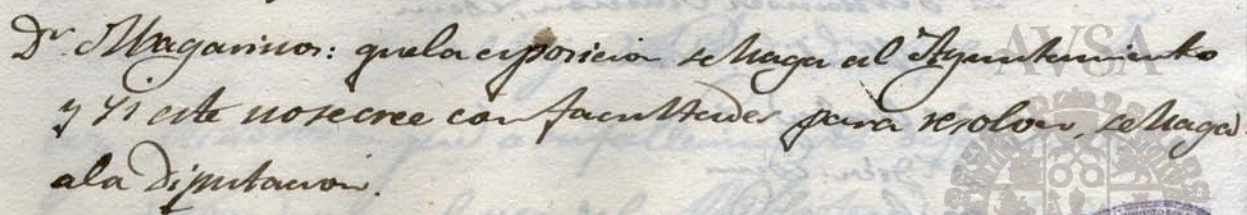 Dr Magarinos: quela exposicion se haga al Ayuntamiento
y si este nosecree con facultades para resolver, se haga
ala Diputacion.
AVSA